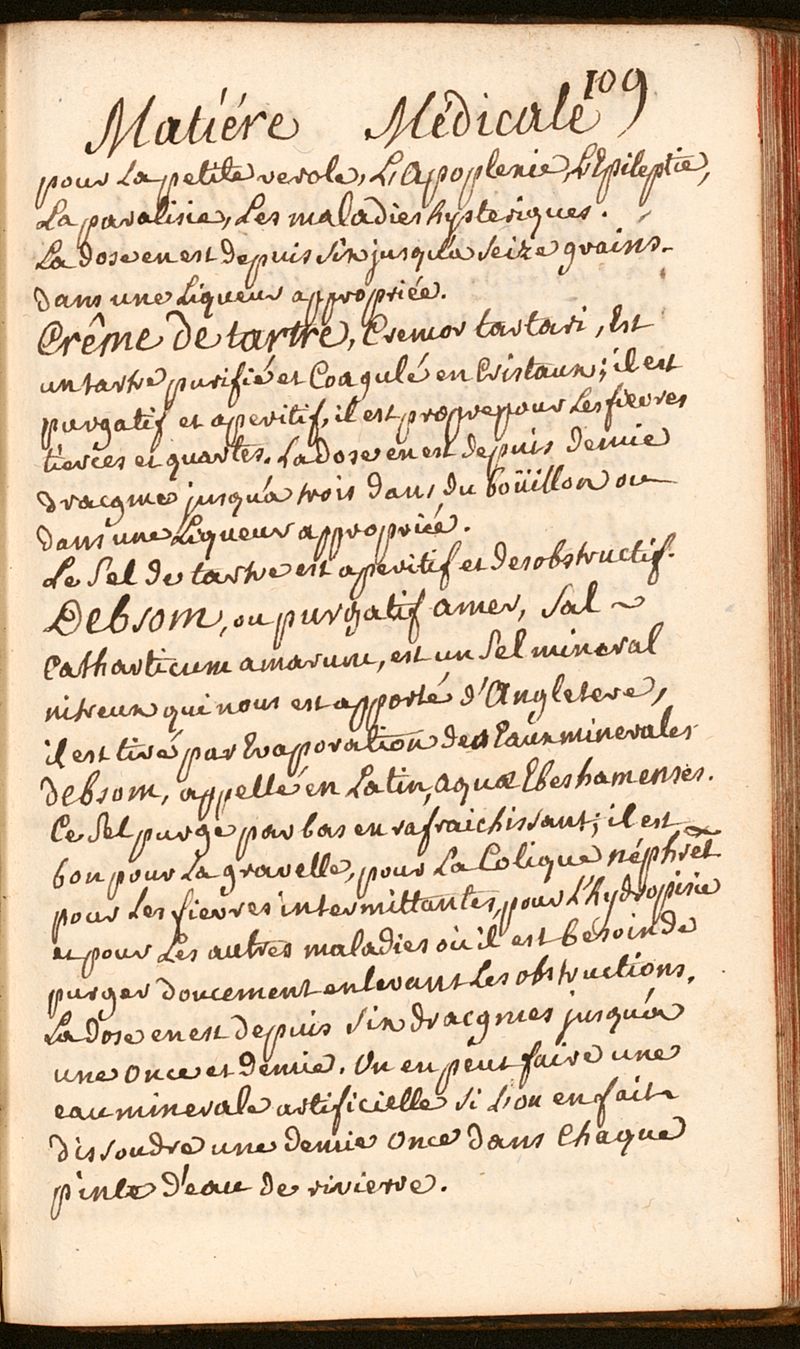 109
Matiére Médicale
pour La petite verole, L'Apoplexie, L'Epileptie,
La paralisie, Les maladies hysteriques.
La dose en est depuis six jusqu'a seize grains
dans une Liqueur appropriée.
Crême de tartre, Cremor tartari, Est
un tartre purifié et Coagulé en Cristaux; il est
purgatif et aperitif, il est propre pour Les fievres
tierces et quartes. La dose en est depuis demie
dracgme jusqu'a trois dans du boüillon ou
dans une Liqueur appropriée.
Le Sel de tartre est aperitif et desobstructif.
Debsom, ou purgatif amer, Sal ~
Catharticum amarum, est un Sel mineral
nitreux qui nous est apporté d'Angletere,
il est tiré par Evaporation des Eaux minerales
debsom, appellé en Latin, aquæ Ebeshamenses.
Ce Sel purge par bas en rafraichissant; il est
bon pour La gravelle, pour La Colique néphret
pour Les fievres intermittantes, pour L'hydropisie
et pour Les autres maladies où il est besoin de
purger doucement en levant Les obstructions.
La dose en est depuis Six dracgmes jusqu'a
une Once et demie. On en peut faire une
eau minerale artificielle Si L'on en fait
dissoudre une demie Once dans Chaque
pinte d'eau de rivierre.